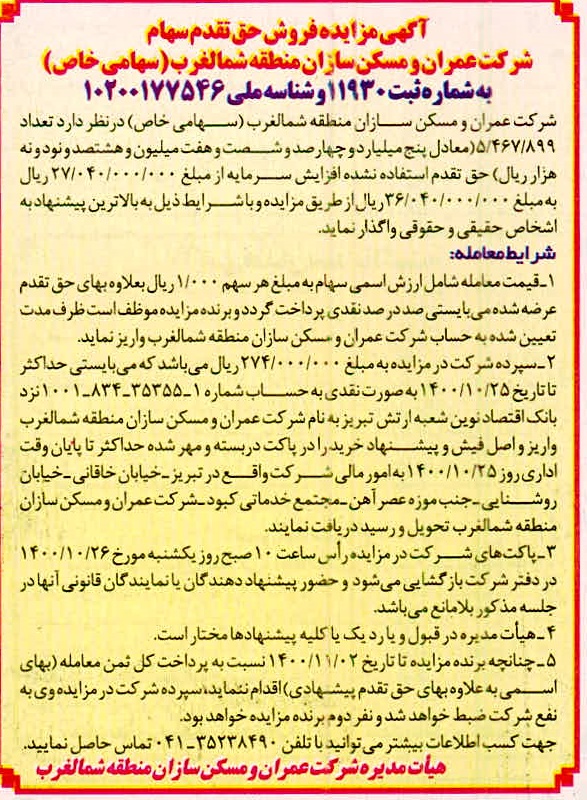 آگهی مزایده فروش حق تقدم سهام
شرکت عمران و مسکن سازان منطقه شمالغرب (سهامی خاص)
به شماره ثبت ۱۱۹۳۰ و شناسه ملی ۱۰۲۰۰۱۷۷۵۴۶
شرکت عمران و مسکن سازان منطقه شمالغرب (سهامی خاص) در نظر دارد تعداد
۵/۴۶۷/۸۹۹ (معادل پنج میلیارد و چهارصد و شصت و هفت میلیون و هشتصد و نود و نه
هزار ریال) حق تقدم استفاده نشده افزایش سرمایه از مبلغ ۲۷/۰۴۰/۰۰۰/۰۰۰ ریال
به مبلغ ۳۶/۰۴۰/۰۰۰/۰۰۰ ریال از طریق مزایده و با شرایط ذیل به بالاترین پیشنهاد به
اشخاص حقیقی و حقوقی واگذار نماید.
شرایط معامله:
۱ـ قیمت معامله شامل ارزش اسمی سهام به مبلغ هر سهم ۱/۰۰۰ ریال بعلاوه بهای حق تقدم
عرضه شده می بایستی صد در صد نقدی پرداخت گردد و برنده مزایده موظف است ظرف مدت
تعیین شده به حساب شرکت عمران و مسکن سازان منطقه شمالغرب واریز نماید.
۲ـ سپرده شرکت در مزایده به مبلغ ۲۷۴/۰۰۰/۰۰۰ ریال می باشد که می بایستی حداکثر
تا تاریخ ۱۴۰۰/۱۰/۲۵ به صورت نقدی به حساب شماره ۱ـ۳۵۳۵۵ـ۸۳۴ـ۱۰۰۱ نزد
بانک اقتصاد نوین شعبه ارتش تبریز به نام شرکت عمران و مسکن سازان منطقه شمالغرب
واریز و اصل فیش و پیشنهاد خرید را در پاکت دربسته و مهر شده حداکثر تا پایان وقت
اداری روز ۱۴۰۰/۱۰/۲۵ به امور مالی شرکت واقع در تبریز ـ خیابان خاقانی ـ خیابان
روشنایی ـ جنب موزه عصر آهن ـ مجتمع خدماتی کبود ـ شرکت عمران و مسکن سازان
منطقه شمالغرب تحویل و رسید دریافت نمایند.
۳ـ پاکت های شرکت در مزایده رأس ساعت ۱۰ صبح روز یکشنبه مورخ ۱۴۰۰/۱۰/۲۶
در دفتر شرکت بازگشایی می شود و حضور پیشنهاد دهندگان یا نمایندگان قانونی آنها در
جلسه مذکور بلامانع می باشد.
۴ـ هیأت مدیره در قبول و یا رد یک یا کلیه پیشنهادها مختار است.
۵ـ چنانچه برنده مزایده تا تاریخ ۱۴۰۰/۱۱/۰۲ نسبت به پرداخت کل ثمن معامله (بهای
اسمی به علاوه بهای حق تقدم پیشنهادی) اقدام ننماید، سپرده شرکت در مزایده وی به
نفع شرکت ضبط خواهد شد و نفر دوم برنده مزایده خواهد بود.
جهت کسب اطلاعات بیشتر می توانید با تلفن ۳۵۲۳۸۴۹۰ـ۰۴۱ تماس حاصل نمایید.
هیأت مدیره شرکت عمران و مسکن سازان منطقه شمالغرب